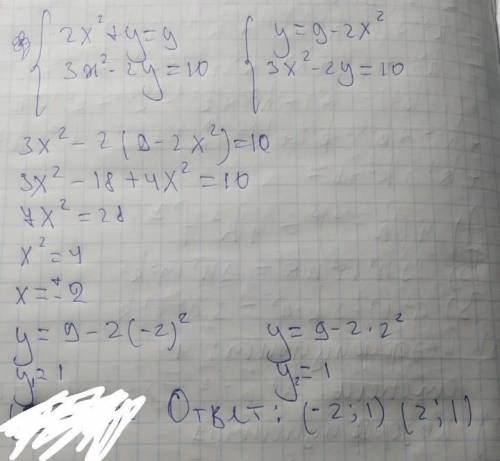 2x²+y=9 y=9-2x²
3x²-2y=10 3x²-2y=10
3x²-2(9-2x²)=10
3x²-18+4x²=10
7x²=28
x²=4
x=±2
y=9-2(-2)² y=9-2·2²
y₁=1 y₂=1
Ответ: (-2;1) (2;1)